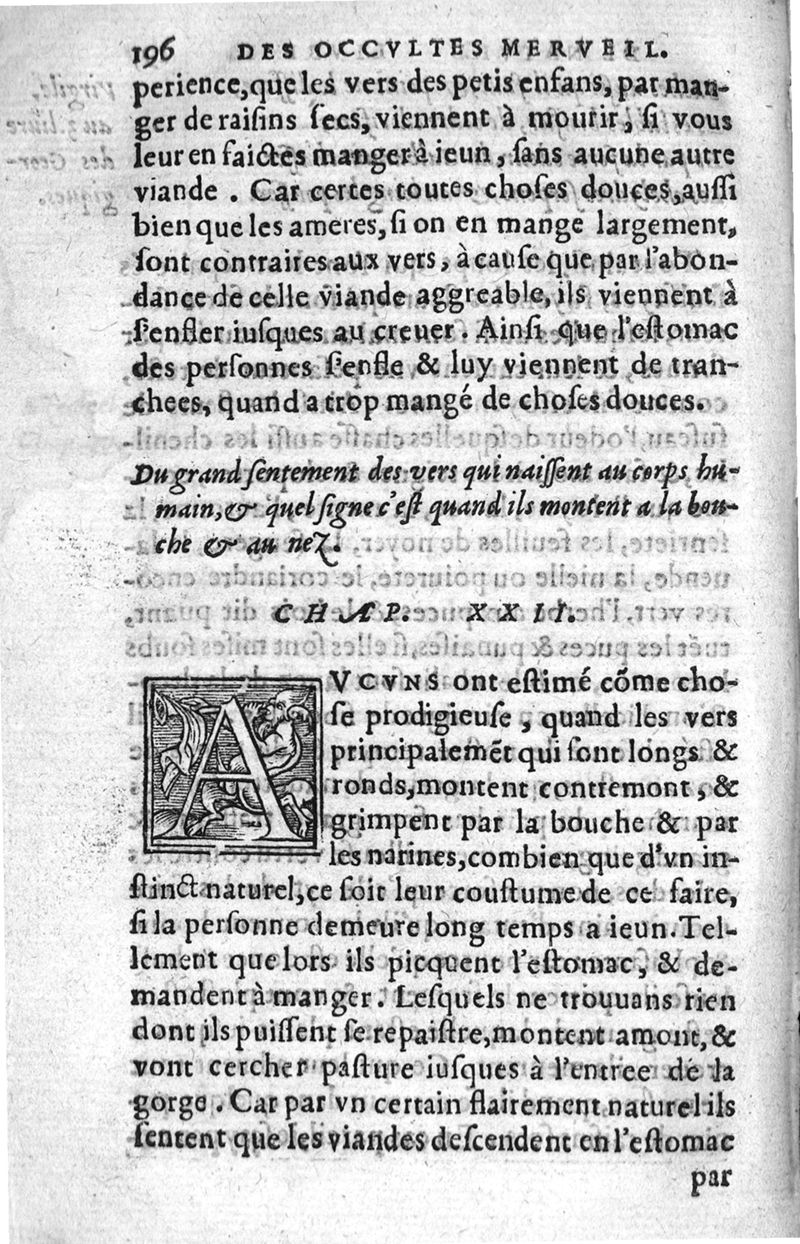 196 DES OCCVLTES MERVEIL.
perience,que les vers des petis enfans, par man-
ger de raiſins ſecs, viennent à mourir, ſi vous
leur en faictes manger à ieun, ſans aucune autre
viande . Car certes toutes choſes douces,auſſi
bien que les ameres, ſi on en mange largement,
ſont contraires aux vers, à cauſe que par l'abon-
dance de celle viande aggreable, ils viennent à
ſ'enfler iuſques au creuer . Ainſi que l'eſtomac
des perſonnes ſ'enfle & luy viennent de tran-
chees, quand a trop mangé de choſes douces.
Du grand ſentement des vers qui naiſſent au corps hu-
main, & quel ſigne c'eſt quand ils montent a la bou-
che & au nez.
CHAP. XXII.
AVCVNS ont eſtimé cõme cho-
ſe prodigieuſe , quand les vers
principalemẽt qui ſont longs &
ronds,montent contremont , &
grimpent par la bouche & par
les narines,combien que d'vn in-
ſtinct naturel,ce ſoit leur couſtume de ce faire,
ſi la perſonne demeure long temps a ieun.Tel-
lement que lors ils picquent l'eſtomac, & de-
mandent à manger. Leſquels ne trouuans rien
dont ils puiſſent ſe repaiſtre,montent amont, &
vont cercher paſture iuſques à l'entree de la
gorge . Car par vn certain flairement naturel ils
ſentent que les viandes deſcendent en l'eſtomac
par